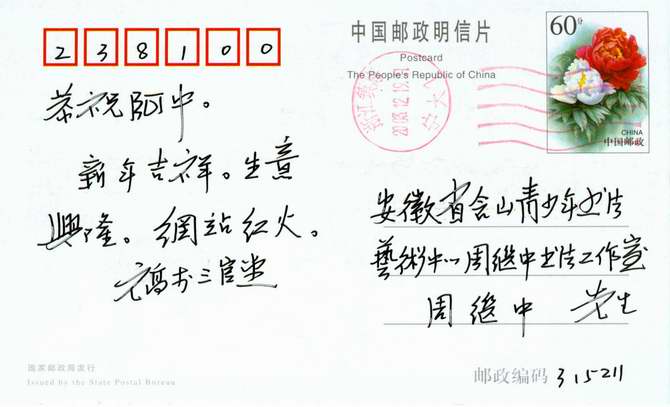 238100
中国邮政明信片
Postcard
The People's Republic of China
60分
CHINA
中国邮政
恭祝阿中。
新年吉祥。生意
興隆。網站红火。
安徽省含山青少年书法
藝術中心周继中书法工作室
周继中 先生
国家邮政局发行
Issued by the State Postal Bureau
邮政编码 315211